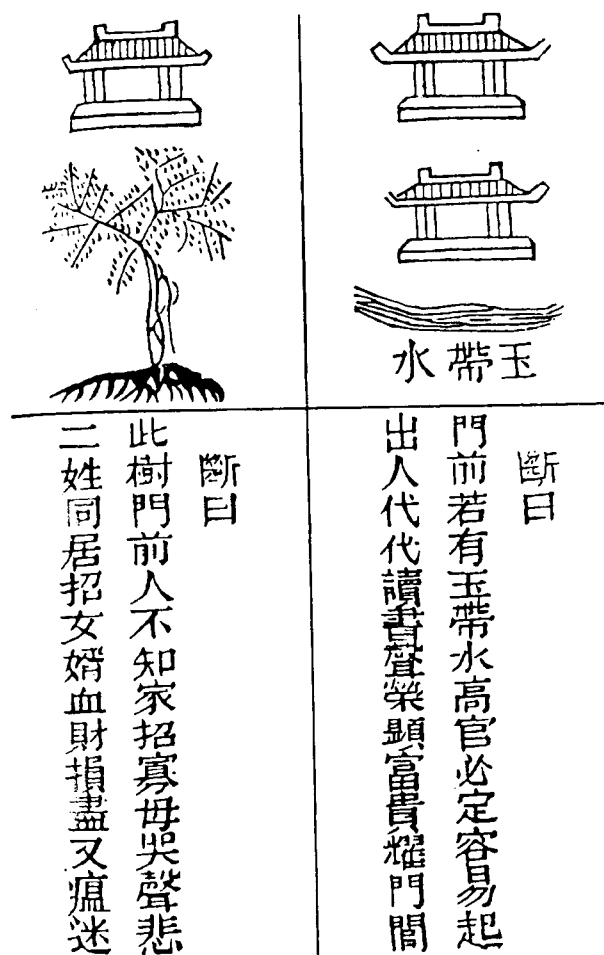 玉帶水
斷曰
門前若有玉帶水高官必定容易起
出人代代讀書聲榮顯富貴耀門閭
斷曰
此樹門前人不知家招寡母哭聲悲
二姓同居招女婿血財損盡又瘟迷